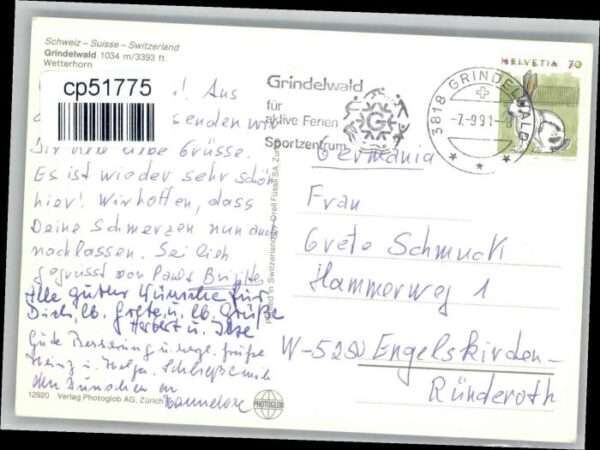 Schweiz – Suisse – Switzerland
Grindelwald 1034 m/3393 ft.
Wetterhorn
cp51775
! Aus
senden wir
Dir viele liebe Grüsse.
Es ist wieder sehr schön
hier! Wir hoffen, dass
Deine Schmerzen nun auch
nachlassen. Sei lieb
gegrüsst von Brigitte
Alle guten Wünsche für
Dich, lb. Grete, u. lb. Grüße
Herbert u. Ilse
Gute Besserung u. Grüße
Heinz u. Helga. Schließe mich
den Wünschen an
Hannelore
12920 Verlag Photoglob AG, Zürich
PHOTOGLOB
Printed in Switzerland by Orell Füssli SA, Zürich
Grindelwald
für
aktive Ferien
Sportzentrum
G
3818 GRINDELWALD
-7.-9.91-
HELVETIA 70
Germania
Frau
Grete Schmuck
Hammerweg 1
W-5250 Engelskirchen-
Ründeroth